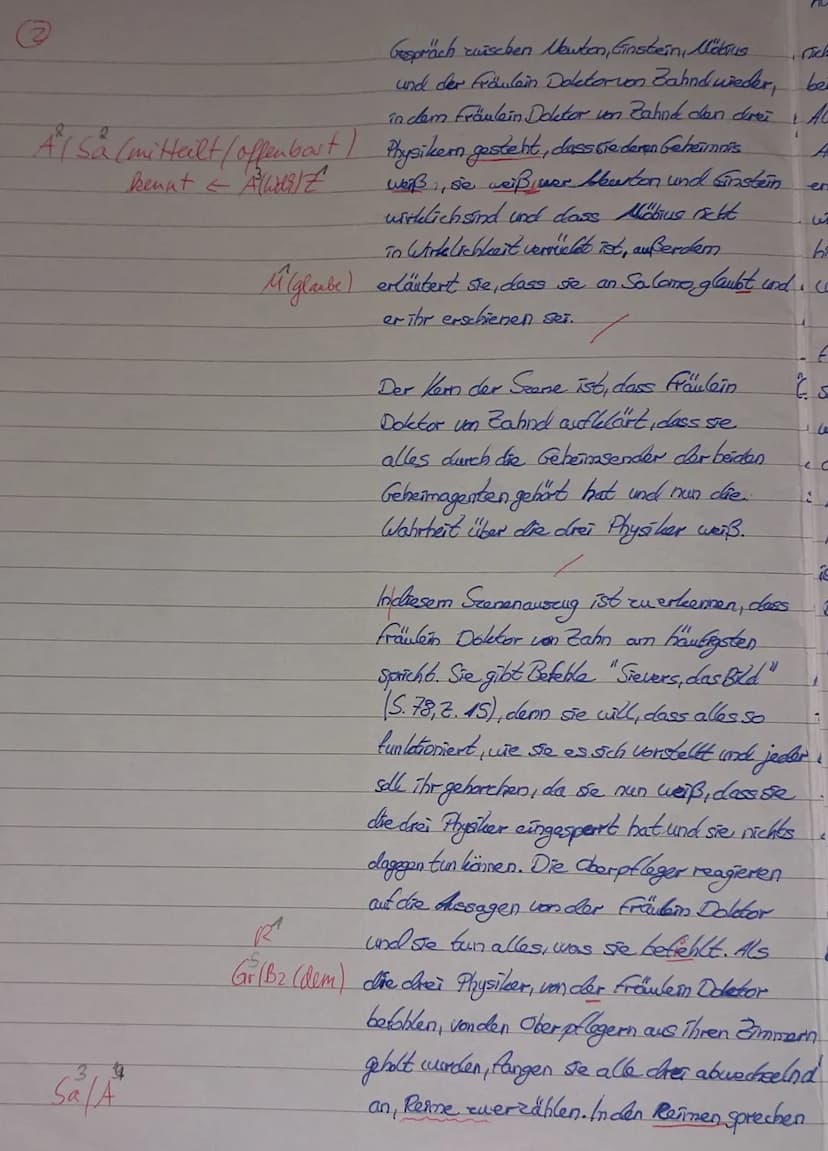 2
Gespräch zwischen Newton, Einstein, Möbius
und der Fräulein Doktor von Zahnd wieder,
in dem Fräulein Doktor von Zahnd den drei
A² / Sa² (mitteilt / offenbart) Physikern gesteht, dass sie deren Geheimnis
kennt ← A³ (Wdg) Z¹ weiß, sie weiß, wer Newton und Einstein
wirklich sind und dass Möbius nicht
in Wirklichkeit verrückt ist, außerdem
M¹ (glaube) erläutert sie, dass sie an Salomo glaubt und
er ihr erschienen sei.
Der Kern der Szene ist, dass Fräulein
Doktor von Zahnd aufklärt, dass sie
alles durch die Geheimsender der beiden
Geheimagenten gehört hat und nun die
Wahrheit über die drei Physiker weiß.
In diesem Szenenauszug ist zu erkennen, dass
Fräulein Doktor von Zahn am häufigsten
spricht. Sie gibt Befehle "Sievers, das Bild"
(S. 78, Z. 15), denn sie will, dass alles so
funktioniert, wie sie es sich vorstellt und jeder
soll ihr gehorchen, da sie nun weiß, dass sie
die drei Physiker eingesperrt hat und sie nichts
dagegen tun können. Die Oberpfleger reagieren
auf die Aussagen von der Fräulein Doktor
R¹ und sie tun alles, was sie befiehlt. Als
Gr⁵ / Bz (dem) die drei Physiker, von der Fräulein Doktor
befohlen, von den Oberpflegern aus ihren Zimmern
geholt wurden, fangen sie alle drei abwechselnd
Sa³ / A⁴ an, Reime zu erzählen. In den Reimen sprechen